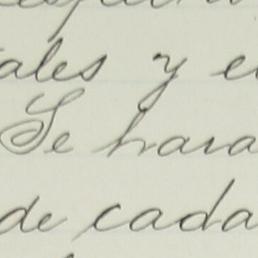 ales y e
Se hara
de cada